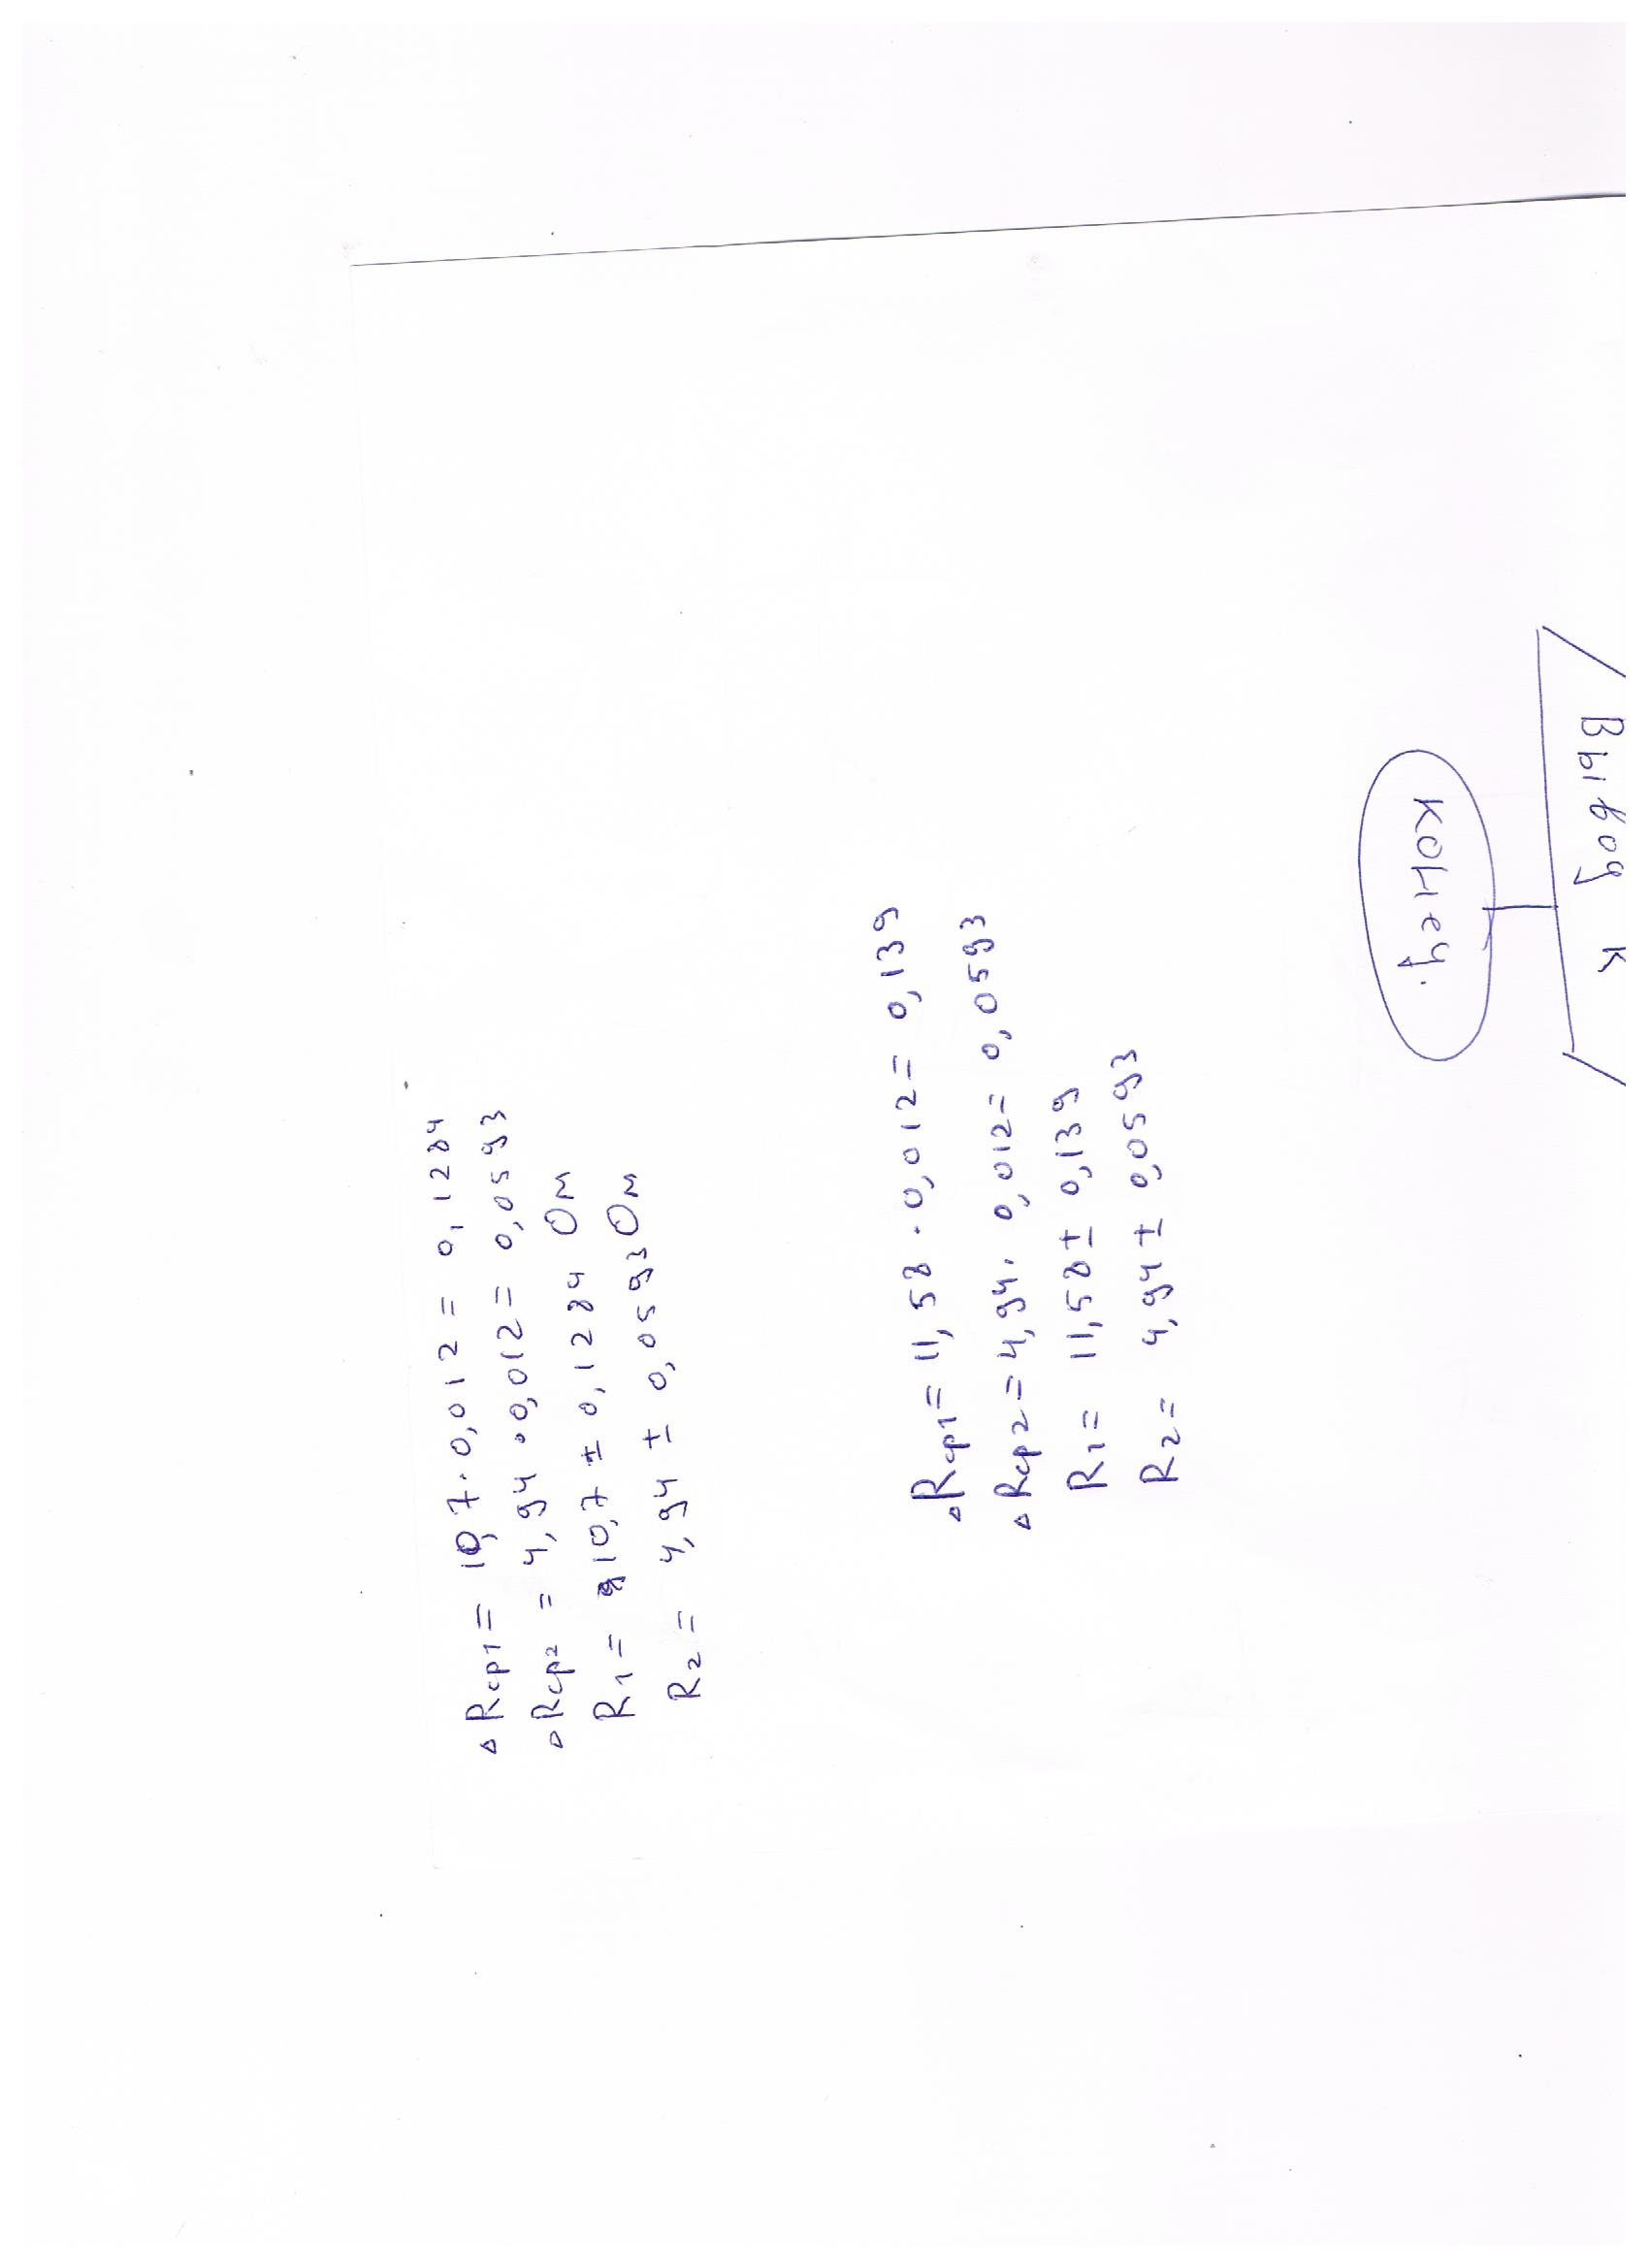 △Rср1= 10,7·0,012= 0,1284
△Rср2 = 4,94·0,012= 0,0593
R1= 10,7 ± 0,1284 Ом
R2= 4,94 ± 0,0593 Ом
△Rср1= 11,58·0,012= 0,139
△Rср2= 4,94·0,012= 0,0593
R1= 11,58 ± 0,139
R2= 4,94 ± 0,0593
Вывод К
конец.